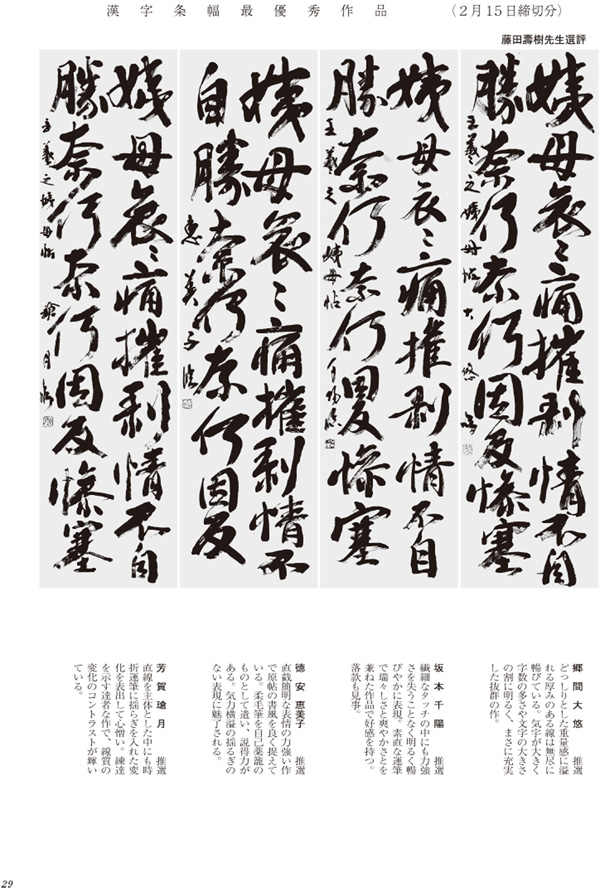 漢字条幅最優秀作品　（２月１５日締切分）
藤田壽樹先生選評
姨母哀〻痛摧剥情不自
勝奈何奈何因反惨塞
王羲之姨母帖 大悠
姨母哀〻痛摧剥情不自
勝奈何奈何因反惨塞
王羲之姨母帖 千陽
姨母哀〻痛摧剥情不
自勝奈何奈何因反
恵美子臨
姨母哀〻痛摧剥情不自
勝奈何奈何因反惨塞
王羲之姨母帖 瑲月臨
郷間大悠　推選
どっしりとした重量感に溢
れる厚みのある線は無尽に
暢びている。気宇が大きく
字数の多さや文字の大きさ
の割に明るく、まさに充実
した抜群の作。
坂本千陽　推選
繊細なタッチの中にも力強
さを失うことなく明るく暢
びやかに表現。素直な運筆
で瑞々しさと爽やかさとを
兼ねた作品で好感を持つ。
落款も見事。
徳安恵美子　推選
直截簡明な表情の力強い作
で原帖の書風を良く捉えて
いる。柔毛筆を自己薬籠の
ものとして遣い、説得力が
ある。気力横溢の揺るぎの
ない表現に魅了される。
芳賀瑲月　推選
直線を主体とした中にも時
折運筆に揺らぎを入れた変
化を表出して心憎い。練達
を示す達者な作で、線質の
変化のコントラストが輝い
ている。
29